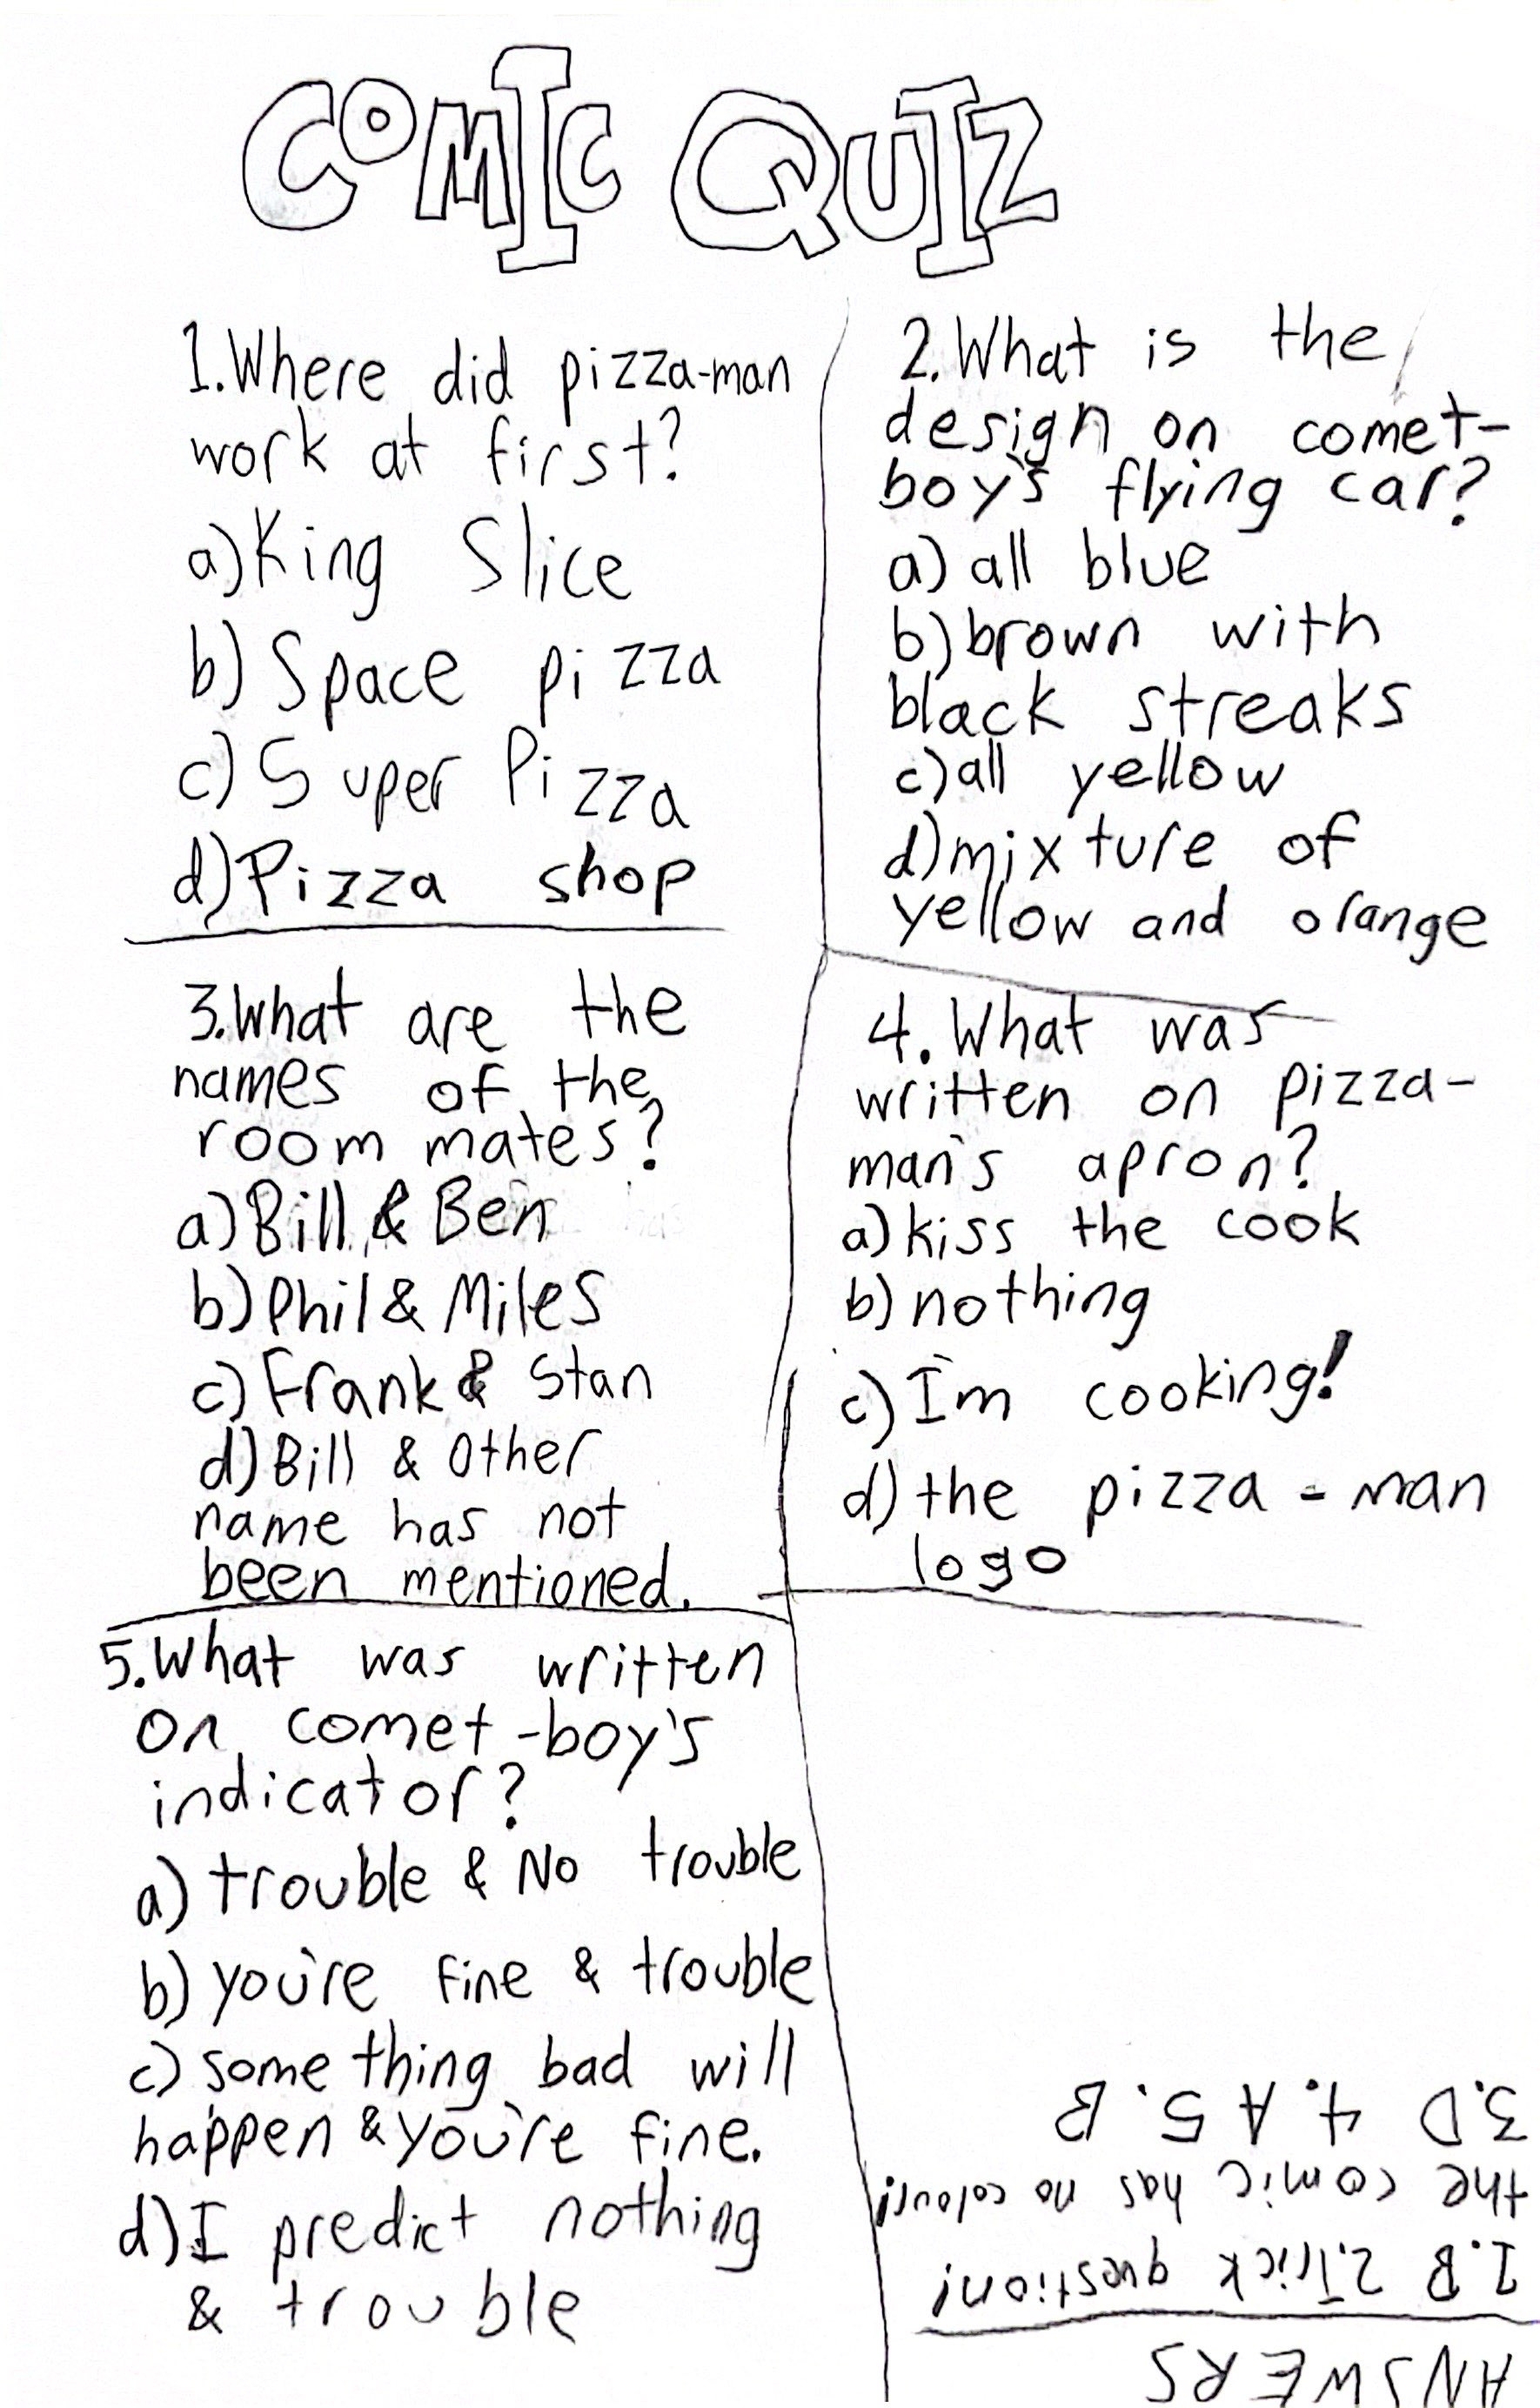 COMIC QUIZ
1. Where did pizza-man
work at first?
a) King Slice
b) Space pizza
c) Super Pizza
d) Pizza shop
2. What is the
design on comet-
boy's flying car?
a) all blue
b) brown with
black streaks
c) all yellow
d) mixture of
yellow and orange
3. What are the
names of the
room mates?
a) Bill & Ben
b) Phil & Miles
c) Frank & Stan
d) Bill & Other
name has not
been mentioned.
4. What was
written on pizza-
man's apron?
a) kiss the cook
b) nothing
c) I'm cooking!
d) the pizza-man
logo
5. What was written
on comet-boy's
indicator?
a) trouble & No trouble
b) you're fine & trouble
c) some thing bad will
happen & you're fine.
d) I predict nothing
& trouble
ANSWERS
1. B 2. Trick question!
the comic has no colour!
3. D 4. A 5. B